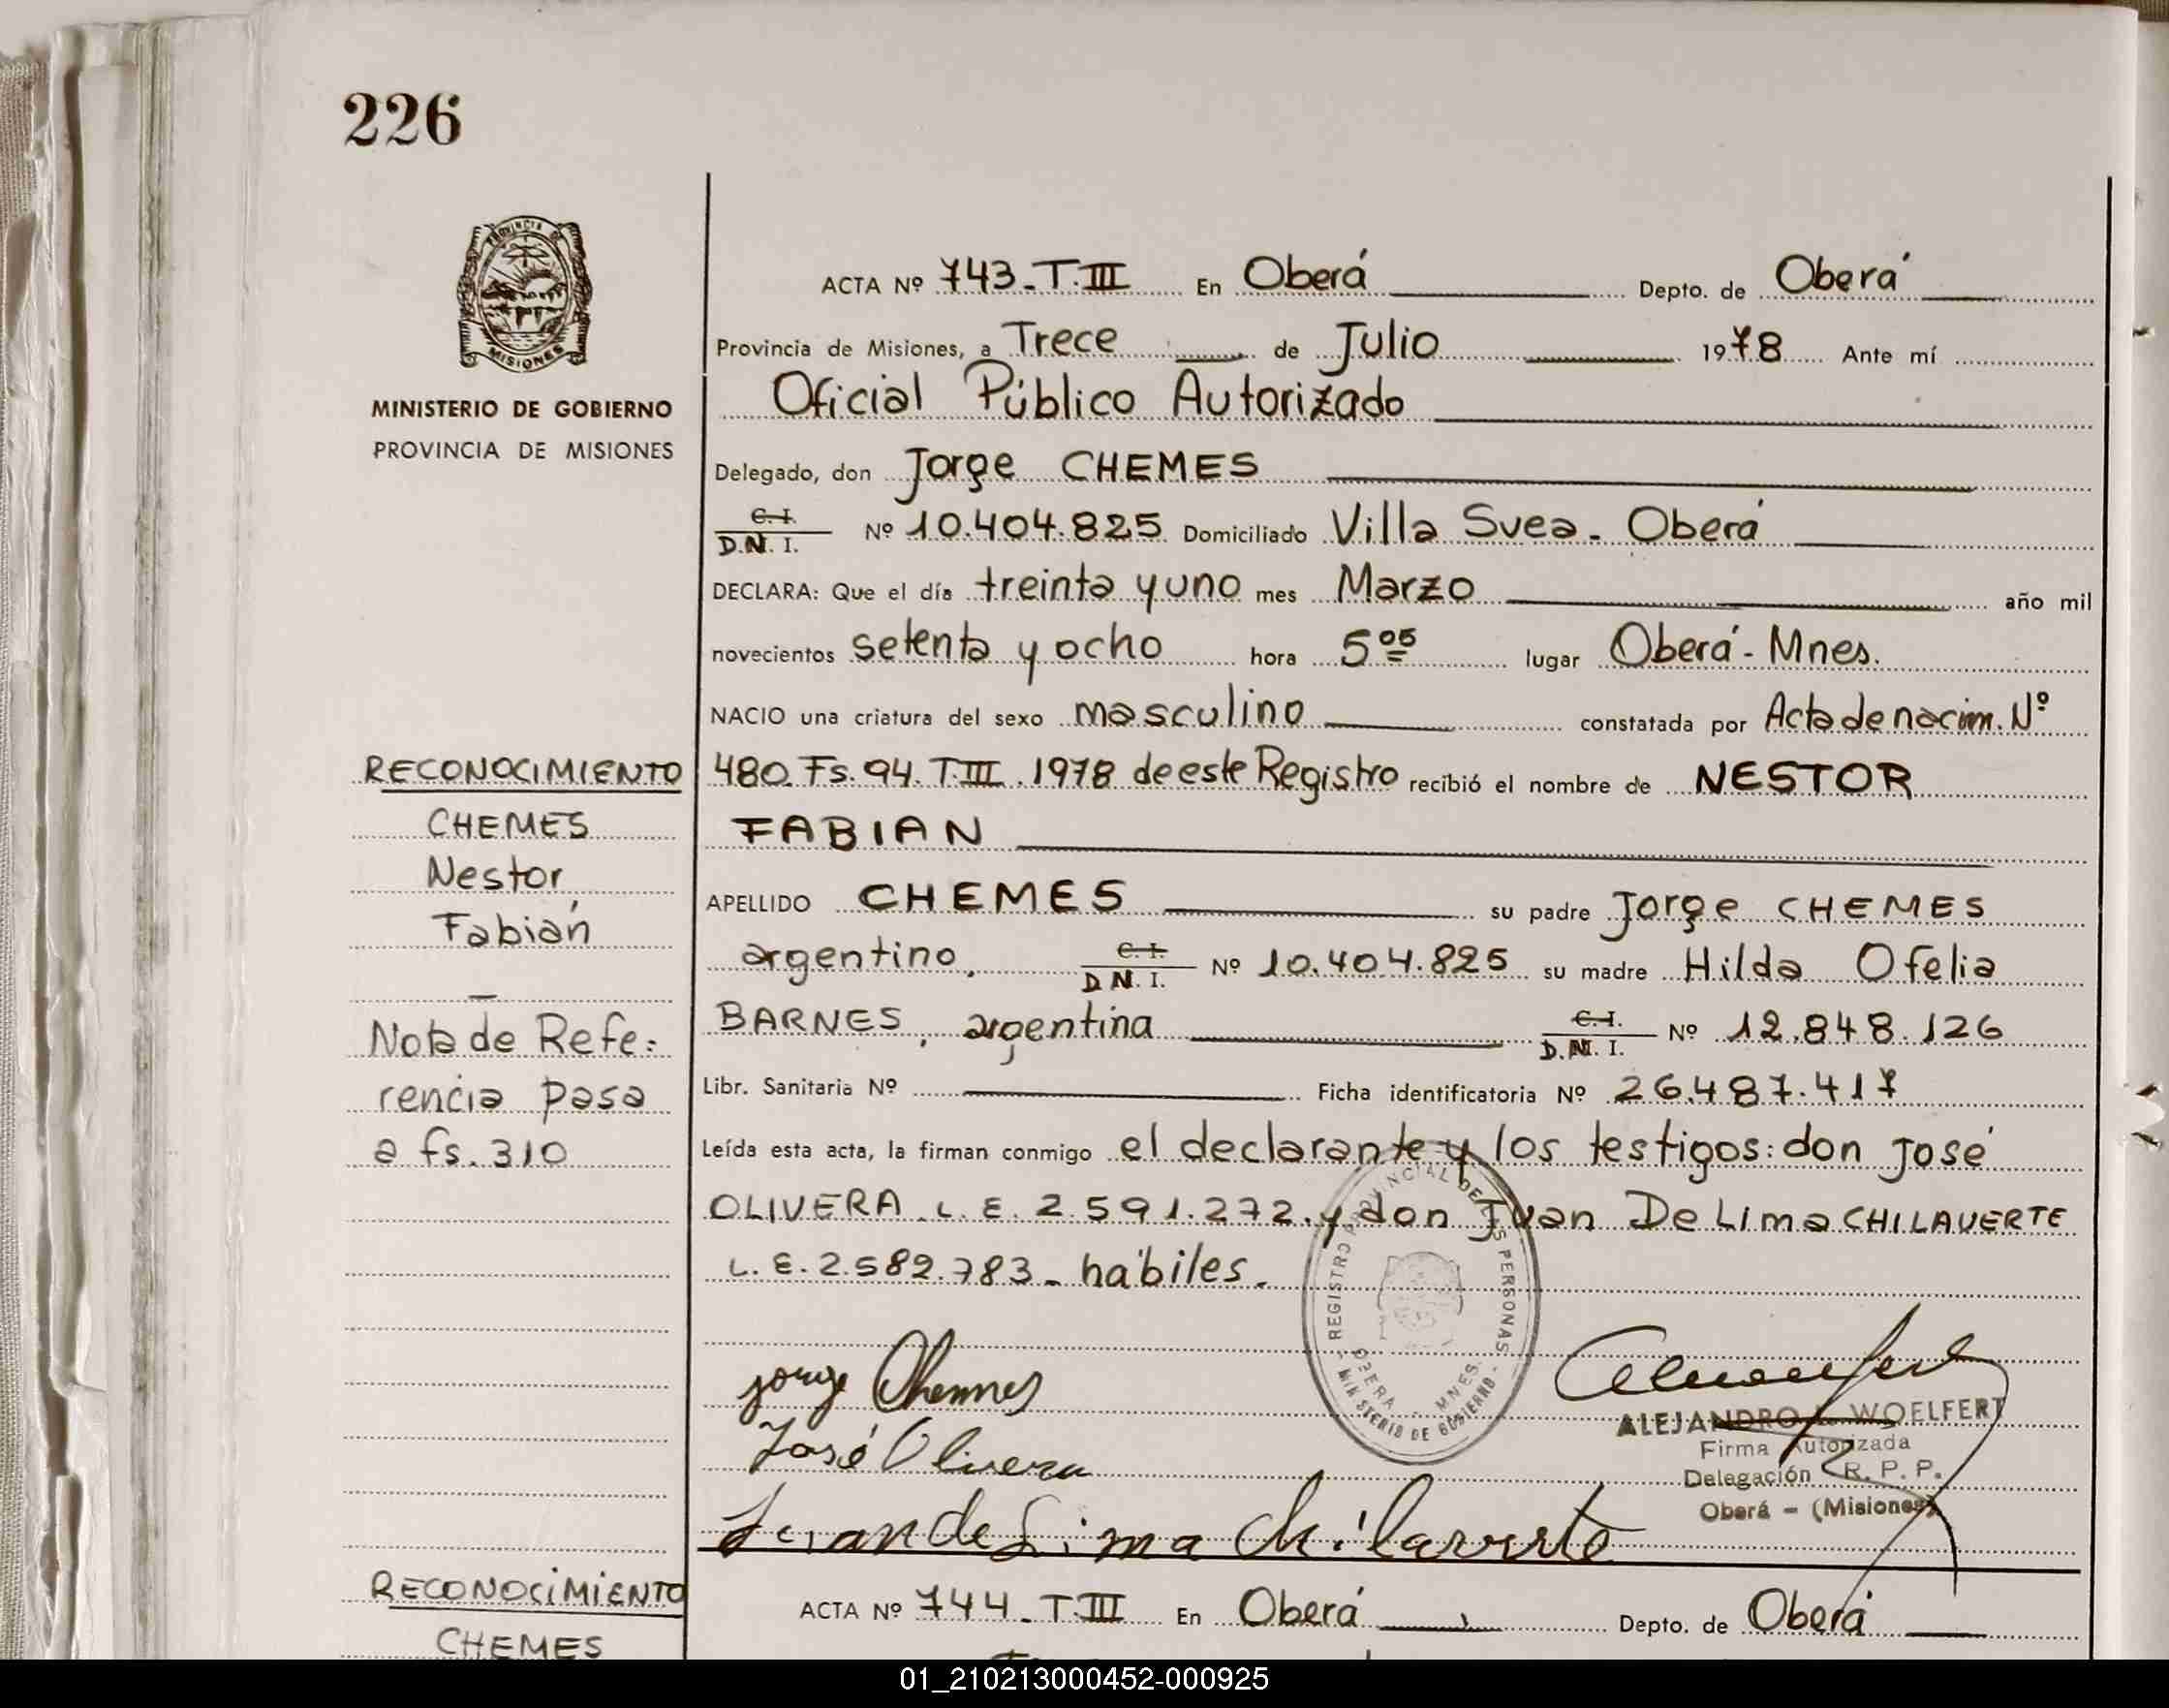 226
PROVINCIA DE
MISIONES
MINISTERIO DE GOBIERNO
PROVINCIA DE MISIONES
RECONOCIMIENTO
CHEMES
Nestor
Fabián
Nota de Refe:
rencia pasa
a fs. 310
ACTA Nº 743-T.III En Oberá Depto. de Oberá
Provincia de Misiones, a Trece de Julio 1978 Ante mí
Oficial Público Autorizado
Delegado, don Jorge CHEMES
C.I. D.N.I. Nº 10.404.825 Domiciliado Villa Svea - Oberá
DECLARA: Que el día treinta y uno mes Marzo año mil
novecientos setenta y ocho hora 5 05 lugar Oberá - Mnes.
NACIO una criatura del sexo masculino constatada por Acta de nacim. Nº
480. Fs. 94. T.III. 1978 de este Registro recibió el nombre de NESTOR
FABIAN
APELLIDO CHEMES su padre Jorge CHEMES
argentino, C.I. D.N.I. Nº 10.404.825 su madre Hilda Ofelia
BARNES, argentina C.I. D.N.I. Nº 12.848.126
Libr. Sanitaria Nº Ficha identificatoria Nº 26.487.417
Leída esta acta, la firman conmigo el declarante y los testigos: don José
OLIVERA. L.E. 2.591.272. y don Juan De Lima CHILAVERTE
L.E. 2.582.783 - hábiles.
REGISTRO PROVINCIAL DE LAS PERSONAS
OBERA - MNES.
MINISTERIO DE GOBIERNO
Jorge Chemes
José Olivera
Juan de Lima Chilaverte
ALEJANDRO L. WOELFERT
Firma Autorizada
Delegación R. P. P.
Oberá - (Misiones)
RECONOCIMIENTO
CHEMES
ACTA Nº 744-T.III En Oberá Depto. de Oberá
01_210213000452-000925